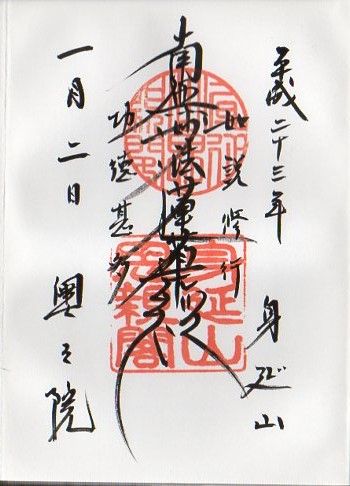 平成二十三年 身延山
如説修行
南無妙法蓮華経
功徳甚多
一月二日 奥之院
身延山
思親閣